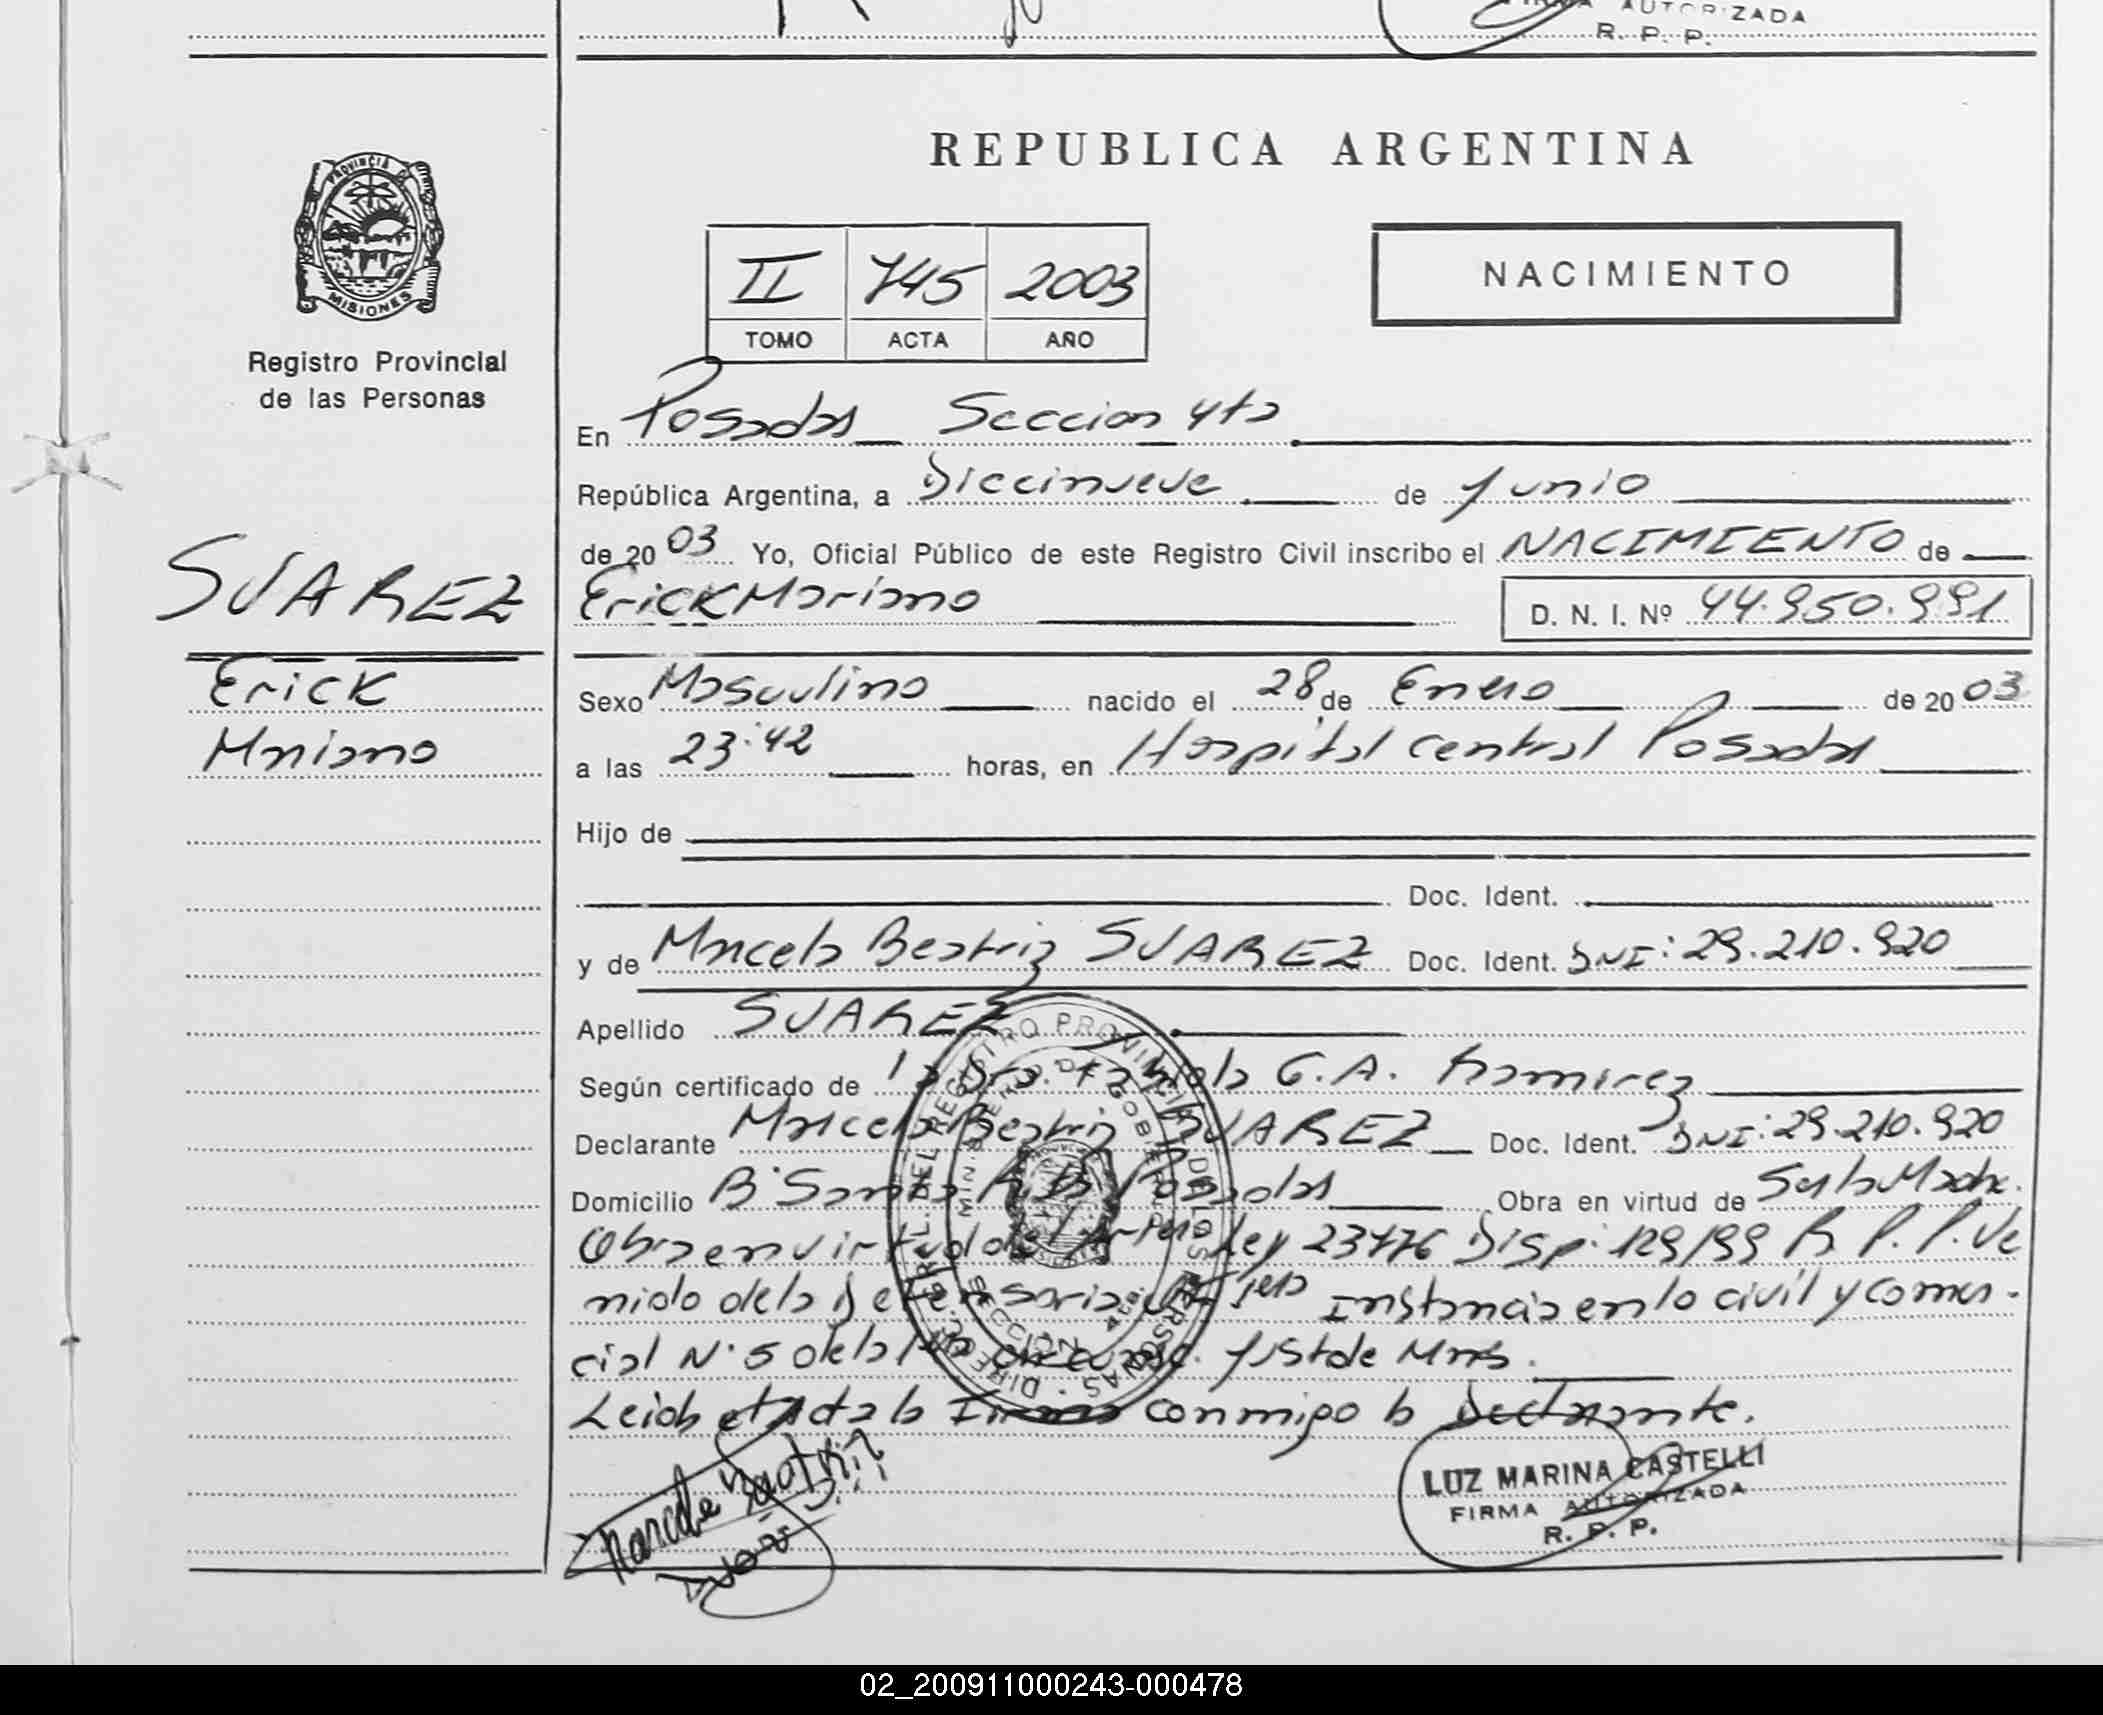 FIRMA AUTORIZADA
R. P. P.
PROVINCIA DE
MISIONES
Registro Provincial
de las Personas
SUAREZ
Erick
Mariano
REPUBLICA ARGENTINA
II 745 2003
TOMO ACTA AÑO
NACIMIENTO
En Posadas Seccion 4ta
República Argentina, a Diecinueve de Junio
de 20 03 Yo, Oficial Público de este Registro Civil inscribo el NACIMIENTO de
Erick Mariano D. N. I. Nº 44.950.991
Sexo Masculino nacido el 28 de Enero de 20 03
a las 23:42 horas, en Hospital Central Posadas
Hijo de
Doc. Ident.
y de Marcela Beatriz SUAREZ Doc. Ident. DNI: 29.210.920
Apellido SUAREZ
Según certificado de la Dra. Fabiola G.A. Ramirez
Declarante Marcela Beatriz SUAREZ Doc. Ident. DNI: 29.210.920
Domicilio Bº Santa Posadas Obra en virtud de Ser la Madre.
Obra en virtud del Ley 23776 Disp: 129/99 R.P.P. Ve
nido de la Defensoria de 1era Instancia en lo civil y comer-
cial Nº 5 de la 1ra circunsc. Just de Mnes.
Leida el Acta la Firma conmigo la Declarante.
DIRECC. GRAL. DEL REGISTRO PROVINCIAL DE LAS PERSONAS
MINISTERIO DE GOBIERNO
SECCION 4ta.
Marcela Beatriz
Suarez
LUZ MARINA CASTELLI
FIRMA AUTORIZADA
R. P. P.
02_200911000243-000478